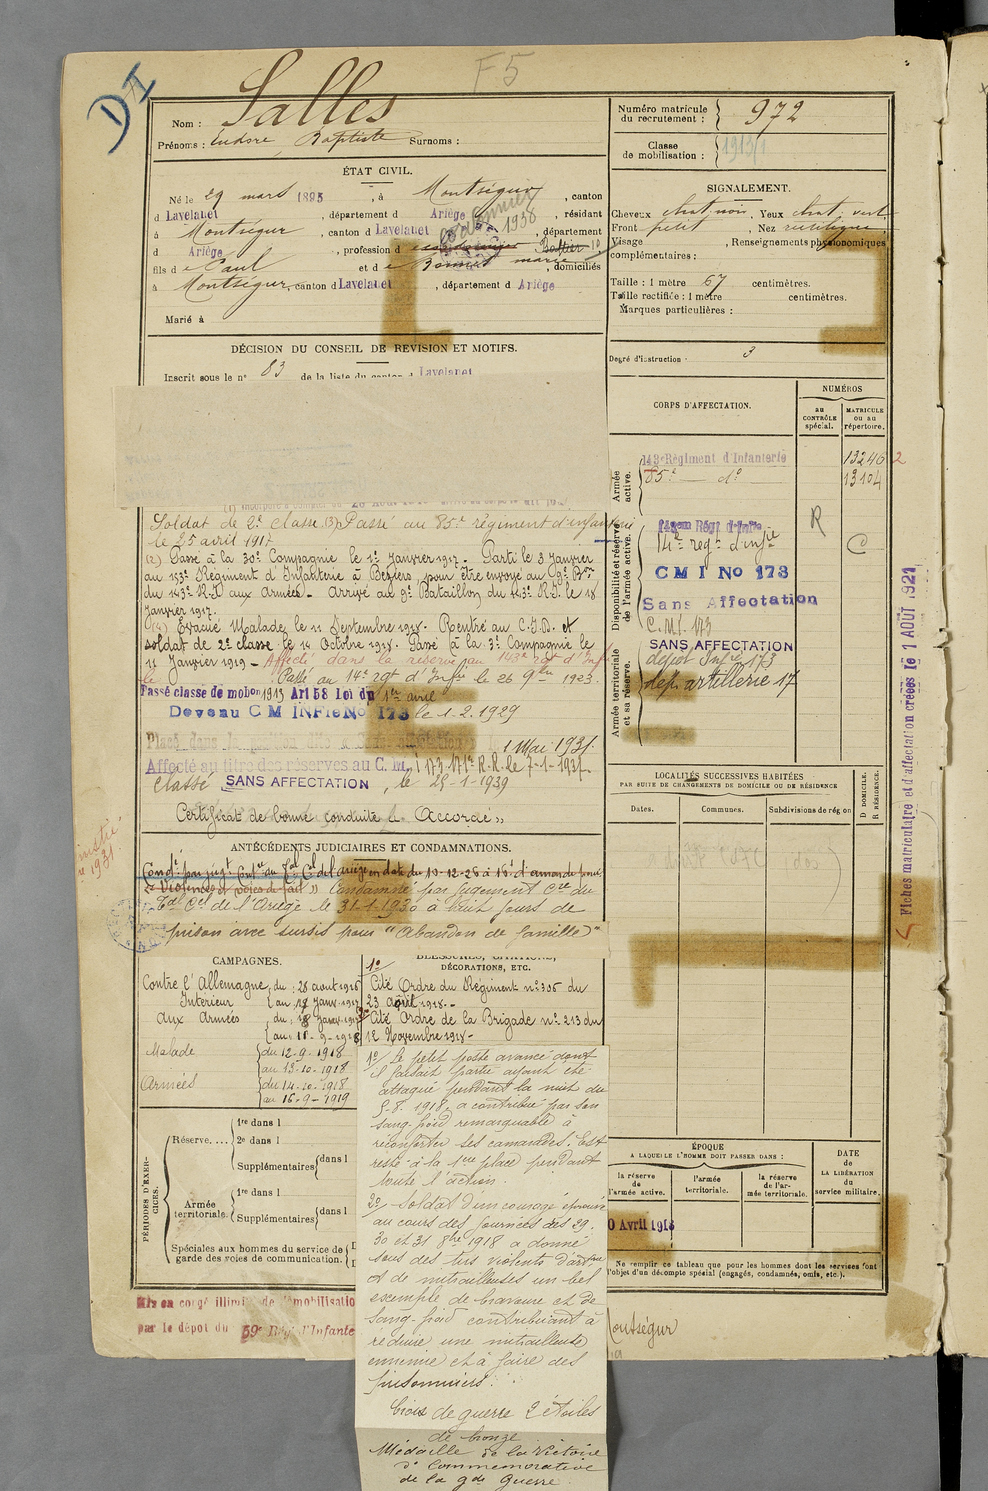 DI
F5
Nom : Salles
Prénoms : Eudore Baptiste Surnoms :
Numéro matricule du recrutement : 972
Classe de mobilisation : 1913/1
ÉTAT CIVIL.
Né le 29 mars 1895, à Montségur, canton
d Lavelanet, département d Ariège, résidant
à Montségur, canton d Lavelanet, département
d Ariège, profession d
cordonnier 1938
fils d e Paul et d e Bonnet marie, domiciliés
à Montségur, canton d Lavelanet, département d Ariège
Marié à
SIGNALEMENT.
Cheveux chat. noir, Yeux chat. vert
Front petit, Nez rectiligne
Visage , Renseignements physionomiques
complémentaires :
Taille : 1 mètre 67 centimètres.
Taille rectifiée : 1 mètre centimètres.
Marques particulières :
Degré d'instruction : 3
DÉCISION DU CONSEIL DE REVISION ET MOTIFS.
Inscrit sous le n° 83 de la liste du canton d Lavelanet
Soldat de 2e classe. (3) Passé au 85e régiment d'infanterie
le 25 avril 1917
(2) Passé à la 30e Compagnie le 1er Janvier 1917. Parti le 3 Janvier
au 153e Régiment d'Infanterie à Beziers, pour être envoyé au 9e Bon
du 143e R.I. aux Armées. Arrivé au 9e Bataillon du 143e R.I. le 18
Janvier 1917.
(4) Evacué Malade le 11 Septembre 1918. Rentré au C.I.D. et
soldat de 2e classe le 14 Octobre 1918. Passé à la 3e Compagnie le
11 Janvier 1919 - Affecté dans la réserve au 143e rgt d'Inf
Passé au 14e rgt d'Infie le 26 9bre 1923.
Passé classe de mobon 1913 Art 58 Loi du 1er avril
Devenu C M INFie No 173 le 1.2.1929
Placé dans la position dite sans affectation 1 Mai 1931.
Affecté au titre des réserves au C. M. I 173 R.R. le 7-1-193
Classé SANS AFFECTATION, le 25-1-1939
Certificat de bonne conduite « Accordé »
CORPS D'AFFECTATION.
NUMÉROS
au CONTRÔLE spécial.
MATRICULE ou au répertoire.
Armée active.
143e Régiment d'Infanterie 13246 2
85e — do 13104
Disponibilité et réserve de l'armée active.
14e regt d'infie
R
C
C M I No 173
Sans Affectation
C.M.I. 173
Armée territoriale et sa réserve.
SANS AFFECTATION
dépôt Infie 173
dép. artillerie 17
Fiches matriculaire et d'affectation créées le 1 AOUT 1921
LOCALITÉS SUCCESSIVES HABITÉES
PAR SUITE DE CHANGEMENTS DE DOMICILE OU DE RÉSIDENCE
Dates.
Communes.
Subdivisions de région
D DOMICILE.
R RÉSIDENCE.
ANTÉCÉDENTS JUDICIAIRES ET CONDAMNATIONS.
Condé par jugt Contre du Bal Cel de l'ariège en date du 10-12-25 à 15f d'amende pour
« Violences et voies de fait » Condamné par jugement Cel du
Tal Cel de l'Ariège le 31-1-1930 à huit jours de
prison avec sursis pour "Abandon de famille"
CAMPAGNES.
Contre l'Allemagne, du : 28 aout 1916
Intérieur au 17 Janv. 1917
aux Armées du : 18 Janv. 1917
au 11-9-1918
Malade du 12.9.1918
au 13-10-1918
Armées du 14.10.1918
au 16-9-1919
BLESSURES, CITATIONS, DÉCORATIONS, ETC.
1o Cité Ordre du Régiment n° 306 du
23 août 1918.
Cité Ordre de la Brigade n° 213 du
12 Novembre 1918-
1o/ Le petit poste avancé dont
il faisait partie ayant été
attaqué pendant la nuit du
5.8.1918, a contribué par son
sang-froid remarquable à
réconforter ses camarades. Est
resté à la 1ere place pendant
toute l'action.
2o - Soldat d'un courage éprouvé
au cours des journées des 29.
30 et 31 8bre 1918 a donné
sous des tirs violents d'artie
et de mitrailleuses un bel
exemple de bravoure et de
sang-froid contribuant à
réduire une mitrailleuse
ennemie et à faire des
prisonniers.
Croix de guerre 2 étoiles
de bronze
Médaille de la Victoire
do Commemorative
de la gde Guerre
PÉRIODES D'EXERCICES.
Réserve....
1re dans l
2e dans l
Supplémentaires dans l
Armée territoriale.
1re dans l
Supplémentaires dans l
Spéciales aux hommes du service de garde des voies de communication.
ÉPOQUE
A LAQUELLE L'HOMME DOIT PASSER DANS :
la réserve de l'armée active.
l'armée territoriale.
la réserve de l'armée territoriale.
DATE de LA LIBÉRATION du service militaire.
0 Avril 1918
Ne remplir ce tableau que pour les hommes dont les services font l'objet d'un décompte spécial (engagés, condamnés, omis, etc.).
Mis en congé illimité de démobilisation
par le dépôt du 59e Régt d'Infante
Montségur